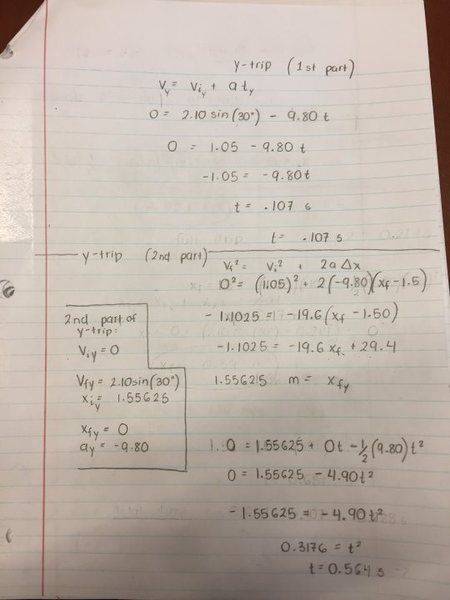 y-trip (1st part)
Vy = Viy + aty
0 = 2.10 sin(30°) - 9.80 t
0 = 1.05 - 9.80t
-1.05 = -9.80t
t = .107 s
t = .107 s
y-trip (2nd part)
Vf² = Vi² + 2aΔx
0² = (1.05)² + 2(-9.80)(xf - 1.5)
- 1.1025 = - 19.6 (xf - 1.50)
- 1.1025 = - 19.6 xf + 29.4
1.55625 m = xfy
2nd part of
y-trip:
Viy = 0
Vfy = 2.10sin(30°)
xiy = 1.55625
xfy = 0
ay = -9.80
0 = 1.55625 + 0t - 1/2 (9.80) t²
0 = 1.55625 - 4.90t²
- 1.55625 = - 4.90 t²
0.3176 = t²
t = 0.564 s